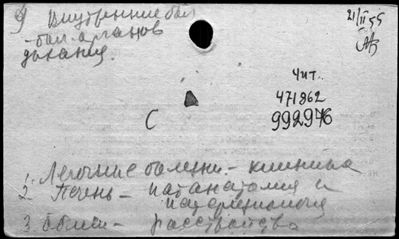 9 Внутренние бол.
- бол. органов
дыхания.
21/II 55
Чит.
471862
992976
С
1. Легочные болезни. - клиника
2. Печень - патанатомия и
патфизиология
3. Обмен - расстройства